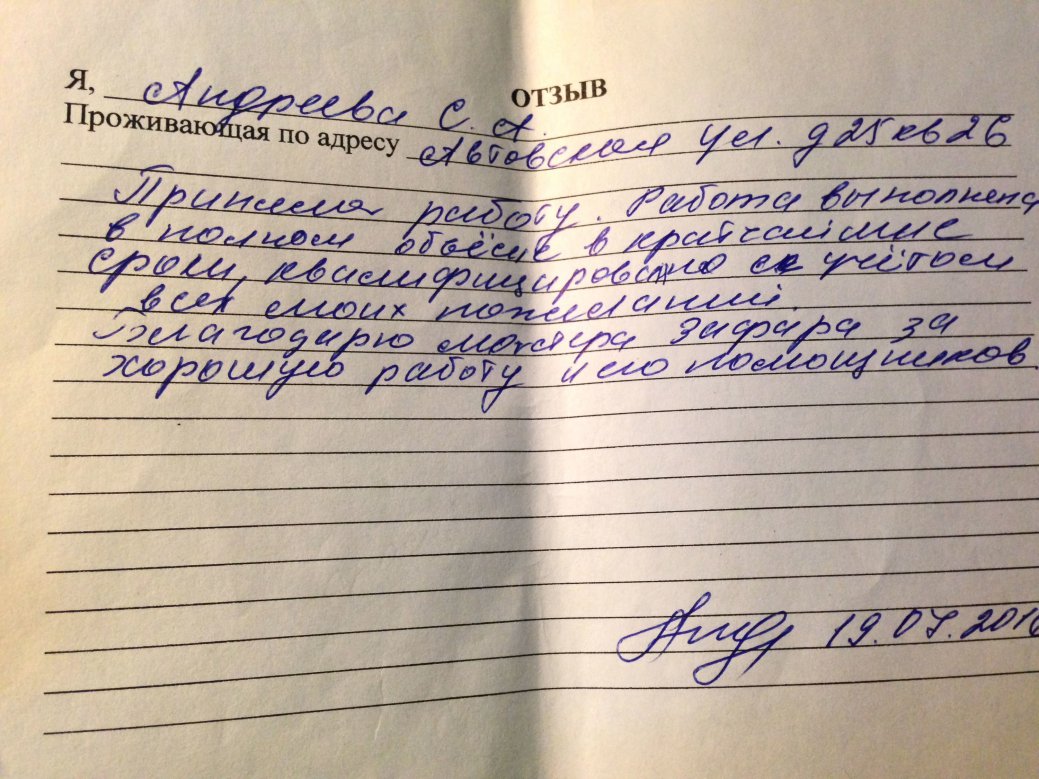 ОТЗЫВ
Я, Андреева С. А.
Проживающая по адресу Автовская ул. д 25 кв 26
Приняла работу. Работа выполнена
в полном объёме в кратчайшие
сроки, квалифицировано с учётом
всех моих пожеланий.
Благодарю мастера Зафара за
хорошую работу и его помощников.
19.07.201